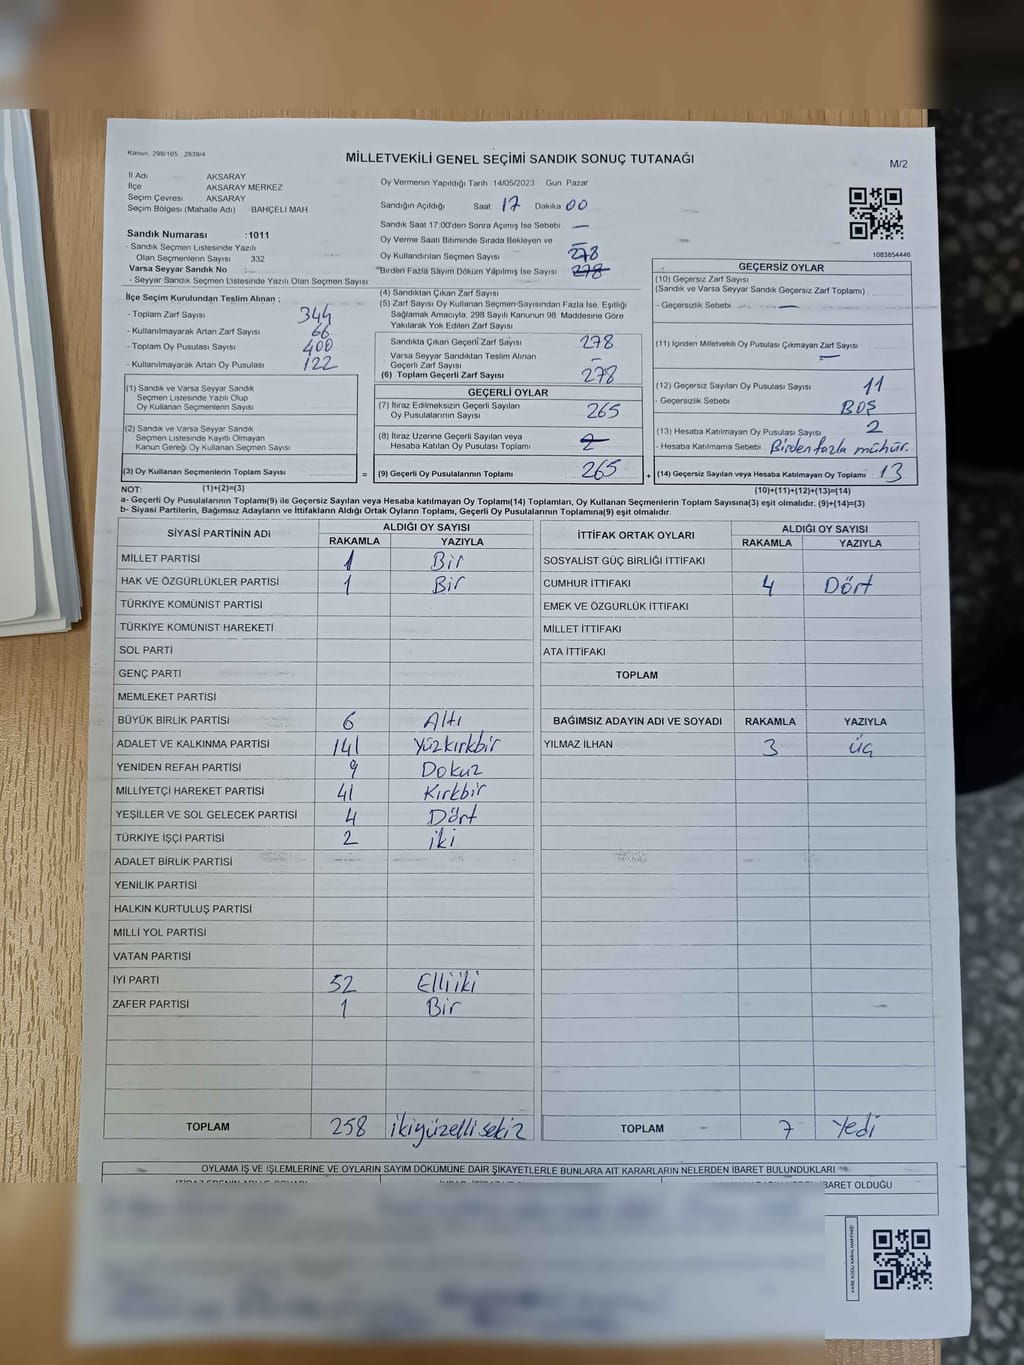 Kanun: 298/105 2839/4
MİLLETVEKİLİ GENEL SEÇİMİ SANDIK SONUÇ TUTANAĞI
M/2
İl Adı AKSARAY
İlçe AKSARAY MERKEZ
Seçim Çevresi AKSARAY
Seçim Bölgesi (Mahalle Adı) BAHÇELİ MAH
Oy Vermenin Yapıldığı Tarih 14/05/2023 Gün Pazar
Sandığın Açıldığı Saat 17 Dakika 00
Sandık Saat 17:00'den Sonra Açımış İse Sebebi —
Oy Verme Saati Bitiminde Sırada Bekleyen ve
Oy Kullandırılan Seçmen Sayısı 278
Birden Fazla Sayım Döküm Yapılmış İse Sayısı 278
1083854446
Sandık Numarası :1011
- Sandık Seçmen Listesinde Yazılı
Olan Seçmenlerin Sayısı 332
Varsa Seyyar Sandık No :
- Seyyar Sandık Seçmen Listesinde Yazılı Olan Seçmen Sayısı
İlçe Seçim Kurulundan Teslim Alınan :
- Toplam Zarf Sayısı 344
- Kullanılmayarak Artan Zarf Sayısı 66
- Toplam Oy Pusulası Sayısı 400
- Kullanılmayarak Artan Oy Pusulası 122
(1) Sandık ve Varsa Seyyar Sandık
Seçmen Listesinde Yazılı Olup
Oy Kullanan Seçmenlerin Sayısı
(2) Sandık ve Varsa Seyyar Sandık
Seçmen Listesinde Kayıtlı Olmayan
Kanun Gereği Oy Kullanan Seçmen Sayısı
(3) Oy Kullanan Seçmenlerin Toplam Sayısı
(1)+(2)=(3)
(4) Sandıktan Çıkan Zarf Sayısı
(5) Zarf Sayısı Oy Kullanan Seçmen Sayısından Fazla İse, Eşitliği
Sağlamak Amacıyla; 298 Sayılı Kanunun 98. Maddesine Göre
Yakılarak Yok Edilen Zarf Sayısı
Sandıkta Çıkan Geçerli Zarf Sayısı 278
Varsa Seyyar Sandıktan Teslim Alınan
Geçerli Zarf Sayısı –
(6) Toplam Geçerli Zarf Sayısı 278
GEÇERLİ OYLAR
(7) İtiraz Edilmeksizin Geçerli Sayılan
Oy Pusulalarının Sayısı 265
(8) İtiraz Üzerine Geçerli Sayılan veya
Hesaba Katılan Oy Pusulası Toplamı 2
= (9) Geçerli Oy Pusulalarının Toplamı 265
GEÇERSİZ OYLAR
(10) Geçersiz Zarf Sayısı
(Sandık ve Varsa Seyyar Sandık Geçersiz Zarf Toplamı)
- Geçersizlik Sebebi —
(11) İçinden Milletvekili Oy Pusulası Çıkmayan Zarf Sayısı
—
(12) Geçersiz Sayılan Oy Pusulası Sayısı 11
- Geçersizlik Sebebi BOŞ
(13) Hesaba Katılmayan Oy Pusulası Sayısı 2
- Hesaba Katılmama Sebebi Birden fazla mühür.
+ (14) Geçersiz Sayılan veya Hesaba Katılmayan Oy Toplamı : 13
(10)+(11)+(12)+(13)=(14)
NOT:
a- Geçerli Oy Pusulalarının Toplamı(9) ile Geçersiz Sayılan veya Hesaba katılmayan Oy Toplamı(14) Toplamları, Oy Kullanan Seçmenlerin Toplam Sayısına(3) eşit olmalıdır. (9)+(14)=(3)
b- Siyasi Partilerin, Bağımsız Adayların ve İttifakların Aldığı Ortak Oyların Toplamı, Geçerli Oy Pusulalarının Toplamına(9) eşit olmalıdır.
SİYASİ PARTİNİN ADI ALDIĞI OY SAYISI
RAKAMLA YAZIYLA
MİLLET PARTİSİ 1 Bir
HAK VE ÖZGÜRLÜKLER PARTİSİ 1 Bir
TÜRKİYE KOMÜNİST PARTİSİ
TÜRKİYE KOMÜNİST HAREKETİ
SOL PARTİ
GENÇ PARTİ
MEMLEKET PARTİSİ
BÜYÜK BİRLİK PARTİSİ 6 Altı
ADALET VE KALKINMA PARTİSİ 141 Yüzkırkbir
YENİDEN REFAH PARTİSİ 9 Dokuz
MİLLİYETÇİ HAREKET PARTİSİ 41 Kırkbir
YEŞİLLER VE SOL GELECEK PARTİSİ 4 Dört
TÜRKİYE İŞÇİ PARTİSİ 2 iki
ADALET BİRLİK PARTİSİ
YENİLİK PARTİSİ
HALKIN KURTULUŞ PARTİSİ
MİLLİ YOL PARTİSİ
VATAN PARTİSİ
İYİ PARTİ 52 Elliiki
ZAFER PARTİSİ 1 Bir
TOPLAM 258 ikiyüzellisekiz
İTTİFAK ORTAK OYLARI ALDIĞI OY SAYISI
RAKAMLA YAZIYLA
SOSYALİST GÜÇ BİRLİĞİ İTTİFAKI
CUMHUR İTTİFAKI 4 Dört
EMEK VE ÖZGÜRLÜK İTTİFAKI
MİLLET İTTİFAKI
ATA İTTİFAKI
TOPLAM
BAĞIMSIZ ADAYIN ADI VE SOYADI RAKAMLA YAZIYLA
YILMAZ İLHAN 3 üç
TOPLAM 7 Yedi
OYLAMA İŞ VE İŞLEMLERİNE VE OYLARIN SAYIM DÖKÜMÜNE DAİR ŞİKAYETLERLE BUNLARA AİT KARARLARIN NELERDEN İBARET BULUNDUKLARI
İBARET OLDUĞU